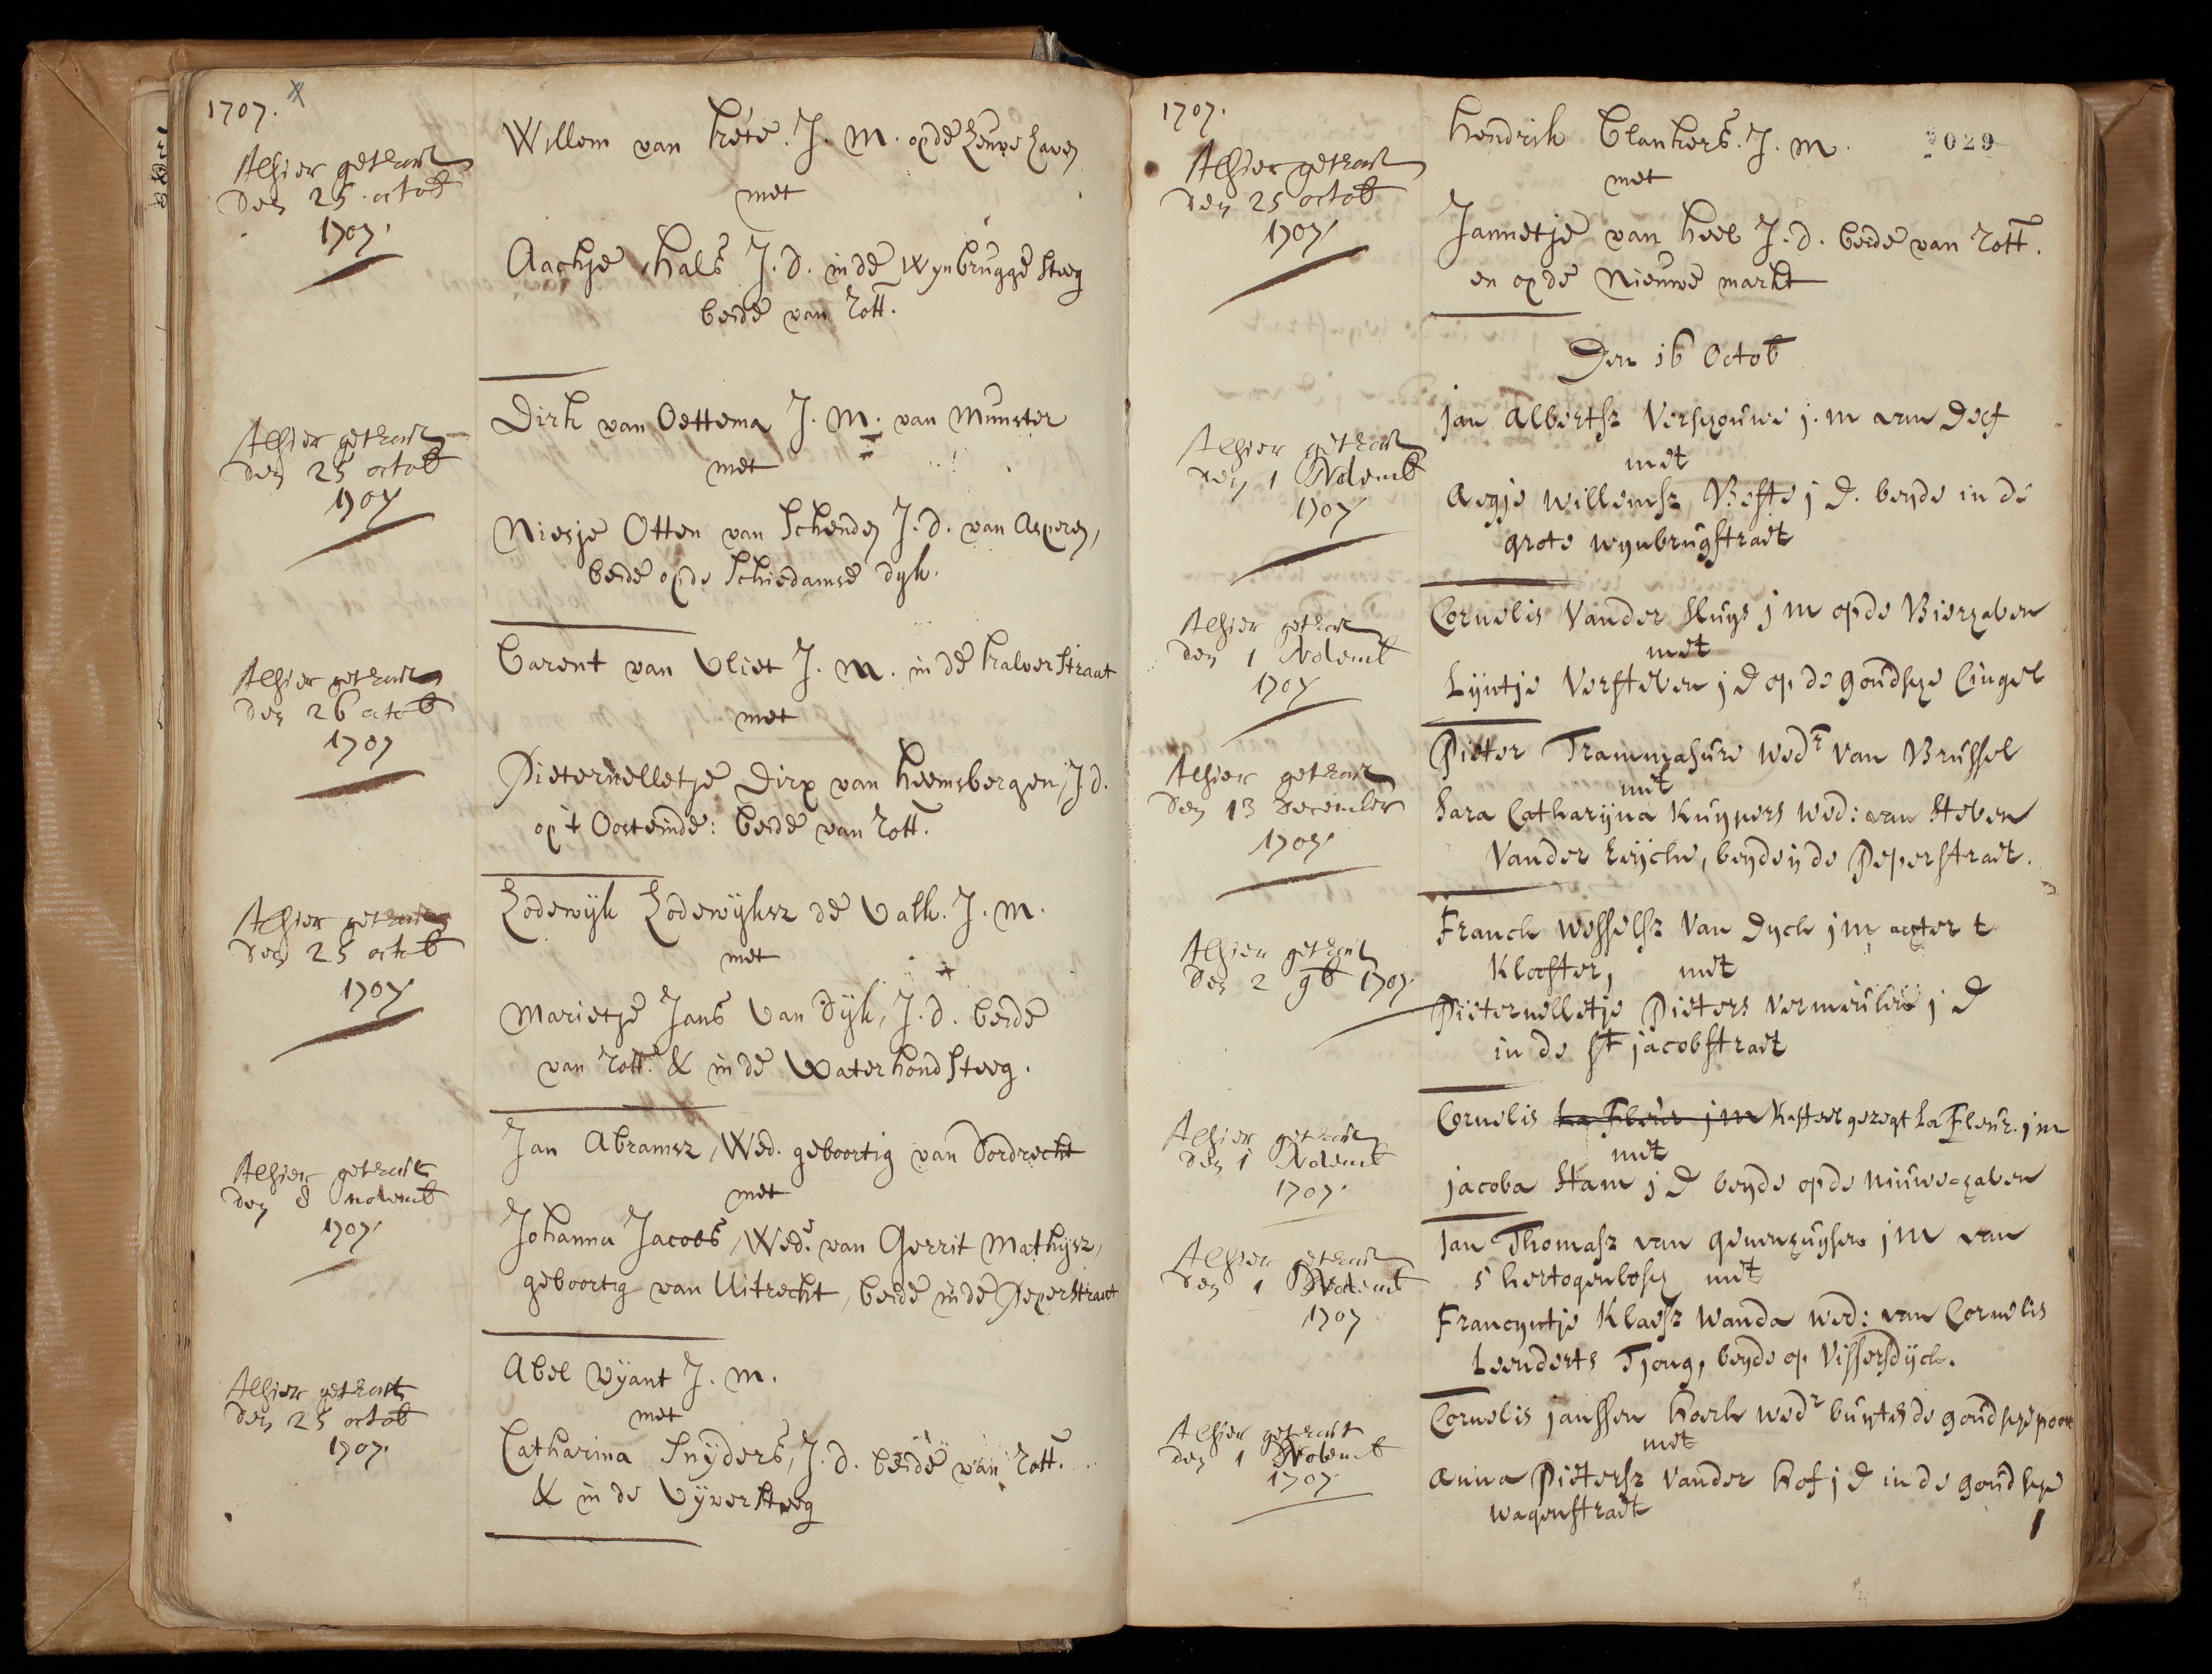 1707.
Alhier getrout
den 25 octob
1707.
Willem van Kéte. J. M. op de Leuve haven
met
Aachje Hals J. d. in de Wynbrugge steeg
beide van Rott.
Alhier getrout
den 25 octob
1707
Dirk van Oettema J. M. van Munster
met
Niesje Otten van Schenden J. d. van Asperen,
beide op de Schiedamse dyk.
Alhier getrout
den 26 octob
1707
Barent van Vliet J. M. in de kalverstraat
met
Pieternelletje Dirx van Heemsbergen, J. d.
op 't Oosteinde: beide van Rott.
Alhier getrout
den 25 octob
1707
Lodewyk Lodewyksz de Valk. J. M.
met
Marietje Jans van Dyk, J. d. beide
van Rott. & in de Waterhondsteeg.
Alhier getrout
den 8 novemb
1707
Jan Abramsz, Wed. geboortig van Dordrecht
met
Johanna Jacobs, Wede. van Gerrit Mathysz,
geboortig van Uitrecht, beide in de Peperstraat
Alhier getrout
den 25 octob
1707.
Abel Wyant J. M.
met
Catharina Snyders, J. d. beide van Rott.
& in de Vyversteeg
1707.
029
Alhier getrout
den 25 octob
1707
Hendrik Blankers. J. M.
met
Jannetje van Heel J. d. beide van Rott.
en op de Nieuwe markt
Den 16 Octob
Alhier getrout
den 1 Novemb
1707
Jan Albertsz Verschouwe j. m van Delf
met
Aegje Willemsz Beste j D. beyde in de
grote wynbrugstraet
Alhier getrout
den 1 Novemb
1707
Cornelis Vander Sluys j m op de Bierhaven
met
Lyntje Versteven j D op de goudsche Cingel
Alhier getrout
den 13 december
1707
Pieter Trammasure wedr van Brussel
met
Sara Catharyna Kuypers wed: van Steven
Vander Eycke, beyde in de Peperstraet.
Alhier getrout
den 2 9b 1707.
Franck Wesselsz Van Dyck j m achter t
Klooster, met
Pieternelletje Pieters Vermeulen j D
in de St jacobstraet
Alhier getrout
den 1 Novemb
1707
Cornelis La Fleur j m Kasteel gezegt La Fleur. j m
met
jacoba Stam j D beyde op de niuwe haven
Alhier getrout
den 1 Novemb
1707
Jan Thomasz van genenhuysen j m van
s hertogenbosch met
Francyntje Klaesz Wanda wed: van Cornelis
Leenderts Tjong, beyde op Vissersdyck.
Alhier getrout
den 1 Novemb
1707
Cornelis janssen Koek wedr buyten de goudsche poort
met
Anna Pietersz Vander Hof j D in de goudsche
wagenstraet